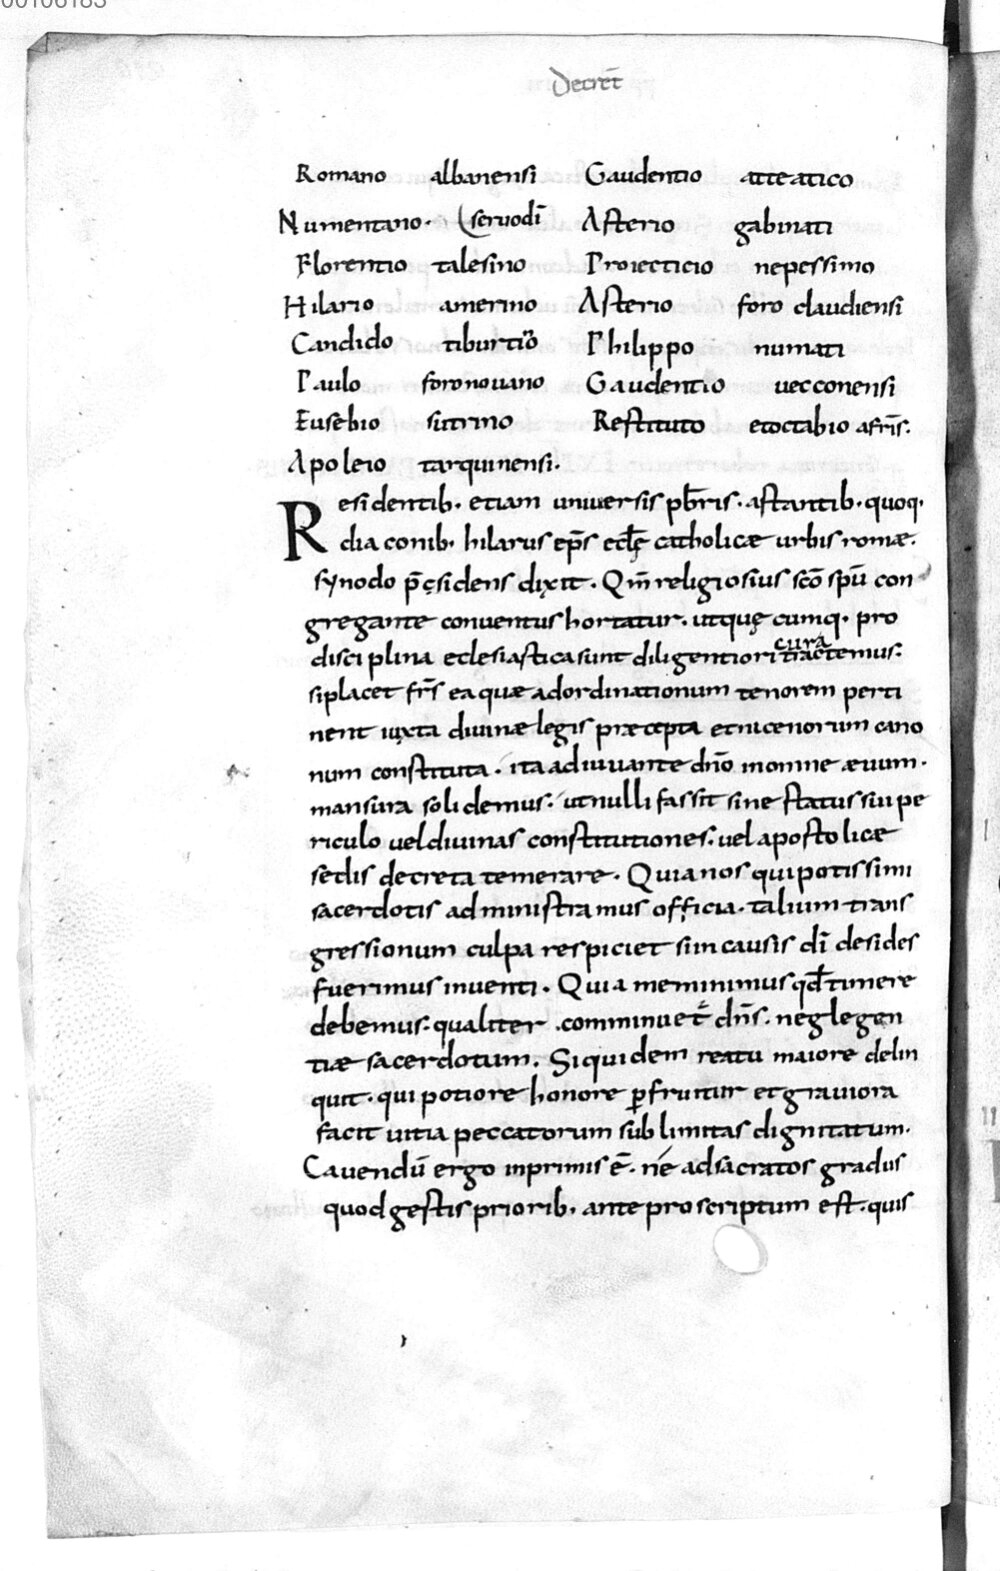 00106183
Decret̄
Romano albanensi Gaudentio atteatico
Numentano· servodī Asterio gabinati
Florentio talesino Proiecticio nepessimo
Hilario amerino Asterio foro claudiensi
Candido tiburtiño Philippo numati
Paulo foronouano Gaudentio uecconensi
Eusebio sutrino Restituto etoctabio afrīs.
Apoleio tarquinensi·
Residentib· etiam uniuersis pb̄ris· astantib· quoq·
diaconib· hilarus ep̄s eclę̄ catholicae urbis romae·
synodo p̄ęsidens dixit· Qm̄ religiosius scō spū con
gregante conuentus hortatur· utquę cumq· pro
disciplina eclesiastica sunt diligentiori cura tractemus:
siplacet fr̄s ea quae adordinationum tenorem perti
nent iuxta diuinae legis praecepta et nicenorum cano
num constituta· ita adiuuante dn̄o inomne aeuum·
mansura solidemus: ut nulli fas sit sine status sui pe
riculo uel diuinas constitutiones· uel apostolicae
sedis decreta temerare· Quia nos qui potissimi
sacerdotis administramus officia· talium trans
gressionum culpa respiciet sin causis dī desides
fuerimus inuenti· Quia meminimus qd̄ timere
debemus· qualiter comminuet̄ dn̄s· neglegen
tiae sacerdotum· Siquidem reatu maiore delin
quit· qui potiore honore pfruitur et grauiora
facit uitia peccatorum sublimitas dignitatum·
Cauendū ergo inprimis ē· ne adsacratos gradus
quod gestis priorib· ante proscriptum est· quis